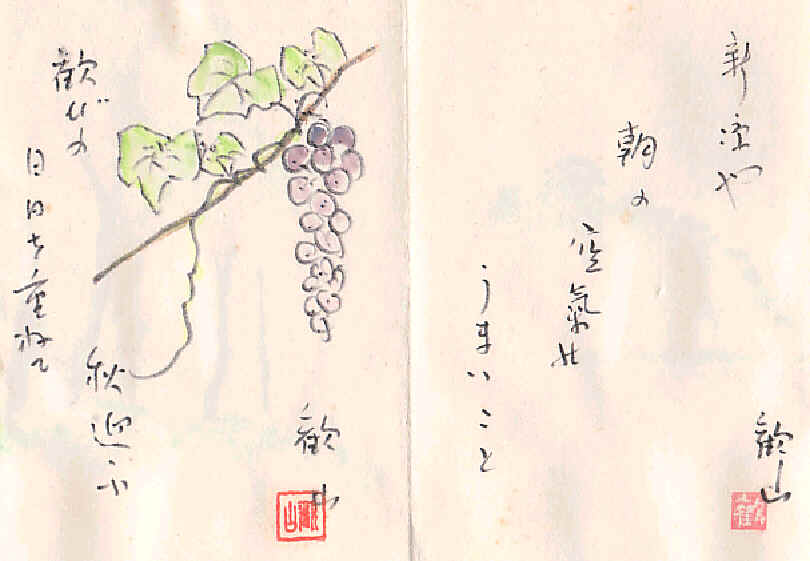 新涼や
朝の
空氣
うまいこと
歓山
歓びの
日日を重ねて
秋迎ふ
歓山